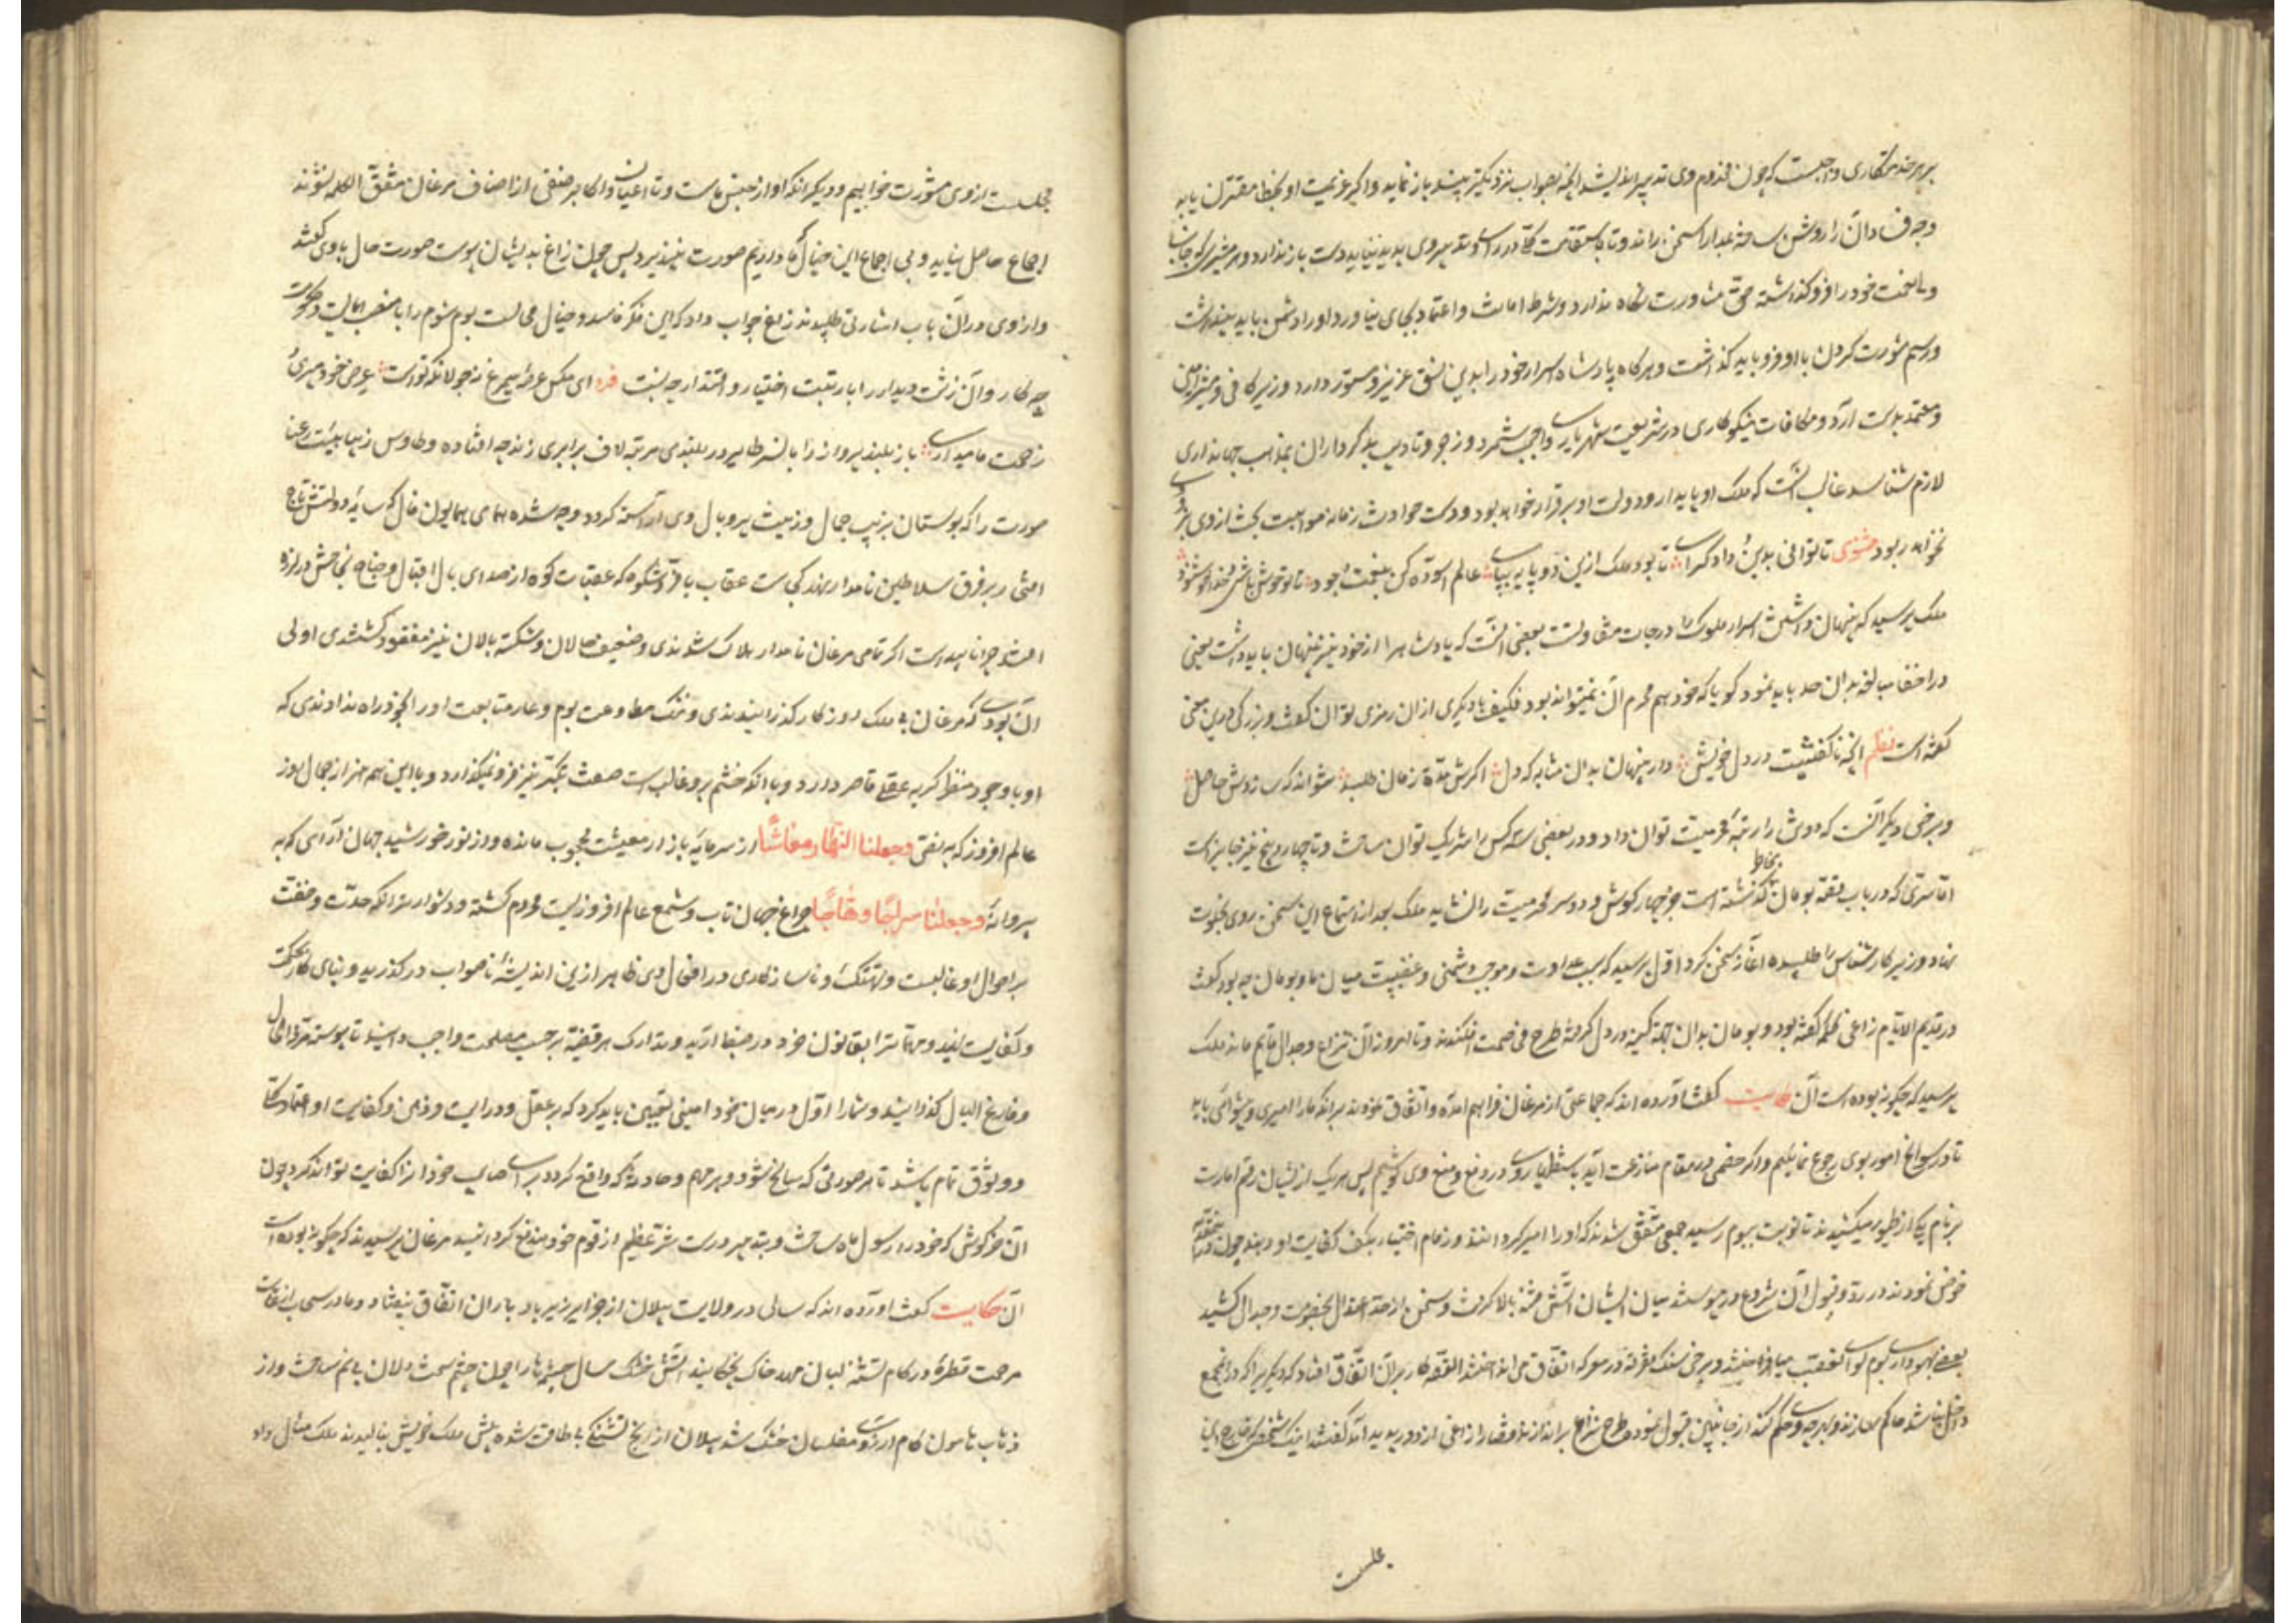 بر هر خدمتکاری واجبست که چون مخدوم وی تدبیر اندیشد آنچه بصواب نزدیکتر بیند باز نماید و اگر عزیمت او بخطا مقترن یابد
وجه فساد آن را روشن سازد و بمدارا سخن راند و تا استقامت کلی در رای و تدبیر وی پدید نیاید دست باز ندارد و هر مشیر که جانب
ولی نعمت خود را فرو گذاشته حق مشاورت نگاه ندارد و شرط امانت و اعتماد بجای نیاورد او را دشمن باید پنداشت
و رسم مشورت کردن با او فرو باید گذاشت و هرگاه پادشاه اسرار خود را بدین نسق عزیز و مستور دارد و وزیر کافی و مشیر امین
و معتمد بدست آرد و مکافات نیکوکاری در شریعت شهریاری واجب شمرد و زجر و تادیب بدکرداران بمذهب جهانداری
لازم شناسد غالب آنست که ملک او پایدار و دولت او برقرار خواهد بود و دست حوادث زمانه مواهب بخت از وی
نخواهد ربود مثنوی تا توانی بدین و داد گرای تا بود ملک ازین دو پایه بپای عالم آسوده کن بنعمت جود تا تو خوش باشی و خدا خوشنود
ملک پرسید که پنهان داشتن اسرار ملوک را درجات متفاوتست بعضی آنست که پادشاه را از خود نیز پنهان باید داشت یعنی
در اخفا مبالغه بدان حد باید نمود که گویا که خود هم محرم آن نمیتواند بود فکیف با دیگری از آن رمزی توان گفت و بزرگی درین معنی
گفته است نظم آنچه ناگفتنیست در دل خویش دار پنهان بدان مثابه که دل اگرش مدة زمان طلبد نتواند که سازدش حاصل
و برخی دیگر آنست که دو تن را رتبه محرمیت توان داد و در بعضی سه کس را شریک توان ساخت و تا چهار و پنج نیز جایز است
اما سری که در باب قصه بومان بخاطر گذشته است جز چهار گوش و دو سر محرمیت را نشاید ملک بعد از استماع این سخن روی بخلوت
نهاد و وزیر کارشناس را طلبیده آغاز سخن کرد اول پرسید که سبب عداوت و موجب دشمنی و عصبیت میان ما و بومان چه بود گفت
در قدیم الایام زاغی کلمه گفته بود و بومان بدان جهة کینه در دل گرفته طرح خصومت افکندند و تا امروز آن نزاع و جدال قایم مانده ملک
پرسید که چگونه بوده است آن حکایت گفت آورده اند که جماعتی از مرغان فراهم آمده و اتفاق نمودند بر آنکه ما را امیری و پیشوائی باید
تا در سوانح امور بوی رجوع نماییم و اگر خصمی در مقام منازعت آید باستظهار وی در دفع و منع وی کوشیم پس هر یک از ایشان رقم امارت
بر نام یکی از طیور میکشیدند تا نوبت ببوم رسید جمعی متفق شدند که او را امیر گردانند و زمام اختیار بکف کفایت او دهند چون در این
خوض نمودند در رد و قبول آن شروع در پیوستند میان ایشان آتش فتنه بالا گرفت و سخن از حد اعتدال بخصومت و جدال کشید
بعضی بهواداری بوم لوای تعصب می افراختند و برخی سنگ تفرقه در معرکه اتفاق می انداختند القصه کار بر آن اتفاق افتاد که دیگری را که در آن مجمع
داخل نباشد حاکم سازند و بهر چه وی حکم کند از جانبین قبول نموده طرح نزاع بر اندازند قضا را زاغی از دور پدید آمد گفتند اینک شخصی که خارج این
مجلست
مجلست از وی مشورت خواهیم و دیگر آنکه او از جنس ماست و تا اعیان و اکابر هر صنفی از اصناف مرغان متفق الکلمه نشوند
اجماع حاصل نیاید و بی اجماع این خیال که ما داریم صورت نپذیرد پس چون زاغ بدیشان پیوست صورت حال با وی گفتند
و از وی در آن باب اشارتی طلبیدند زاغ جواب داد که این فکر فاسد و خیال محالست بوم شوم را با منصب ایالت و حکومت
چه کار و آن زشت دیدار را با رتبت اختیار و اقتدار چه نسبت فرد ای مگس عرصه سیمرغ نه جولانگه تواست عرض خود میبری و
زحمت ما میداری باز بلند پرواز را با نسر طایر در بلندی مرتبه لاف برابری زند چه افتاده و طاوس زیبا هیئت رعنا
صورت را که بوستان بزیب جمال و زینت پر و بال وی آراسته گردد چه شده همای همایون فال که سایه دولتش تاج
افتخار بر فرق سلاطین نامدار نهد کجاست عقاب با فر و شکوه که عقبات کوه از صدای بال اقبال و جناح نجاحش در لرزه
افتد چرا ناپیداست اگر تمامی مرغان نامدار هلاک شوندی و ضعیف حالان و شکسته بالان نیز مفقود گشتندی اولی
آن بودی که مرغان بی ملک روزگار گذرانیدندی و ننگ مطاوعت بوم و عار متابعت او را بخود راه ندادندی که
او با وجود منظر کریه عقلی قاصر دارد و با آنکه خشم بر و غالب است صفت تکبر نیز فرو نمیگذارد و با این همه از جمال روز
عالم افروز که بمقتضی وجعلنا النهار معاشا از سرمایه بازار معیشت محجوب مانده و از نور خورشید جهان آرای که به
پروانه وجعلنا سراجا وهاجا چراغ جهان تاب و شمع عالم افروزیست محروم گشته و دشوارتر آنکه حدت و خفت
بر احوال او غالبست و تهتک و ناسازکاری در افعال وی ظاهر ازین اندیشه ناصواب در گذرید و بنای کار بر حکمت
و کفایت نهید و مهمات را بقانون خرد در ضبط آرید و تدارک هر قضیه بر حسب مصلحت واجب دانید تا پیوسته مرفه الحال
و فارغ البال گذرانید و شما را اول در میان خود امینی تعیین باید کرد که بر عقل و درایت و ذهن و کفایت او اعتماد کلی
و وثوق تمام باشد تا هر صورتی که سانح شود و هر مهم و حادثه که واقع گردد برای صایب خود آنرا کفایت تواند کرد چون
آن خرگوش که خود را رسول ماه ساخت و بتدبیر درست شری عظیم از قوم خود مندفع گردانید مرغان پرسیدند که چگونه بوده است
آن حکایت گفت آورده اند که سالی در ولایت پیلان از جزایر زیرباد باران اتفاق نیفتاد و مادر سحاب از غایت
مرحمت قطره در کام تشنه لبان مهد خاک نچکانید آتش خشک سال چشمها را چون چشم سخت دلان بی نم ساخت و از
تاب ناسور کام آرزوی مفلسان خشک شد پیلان از رنج تشنگی بی طاقت شده پیش ملک خویش بنالیدند ملک مثال داد